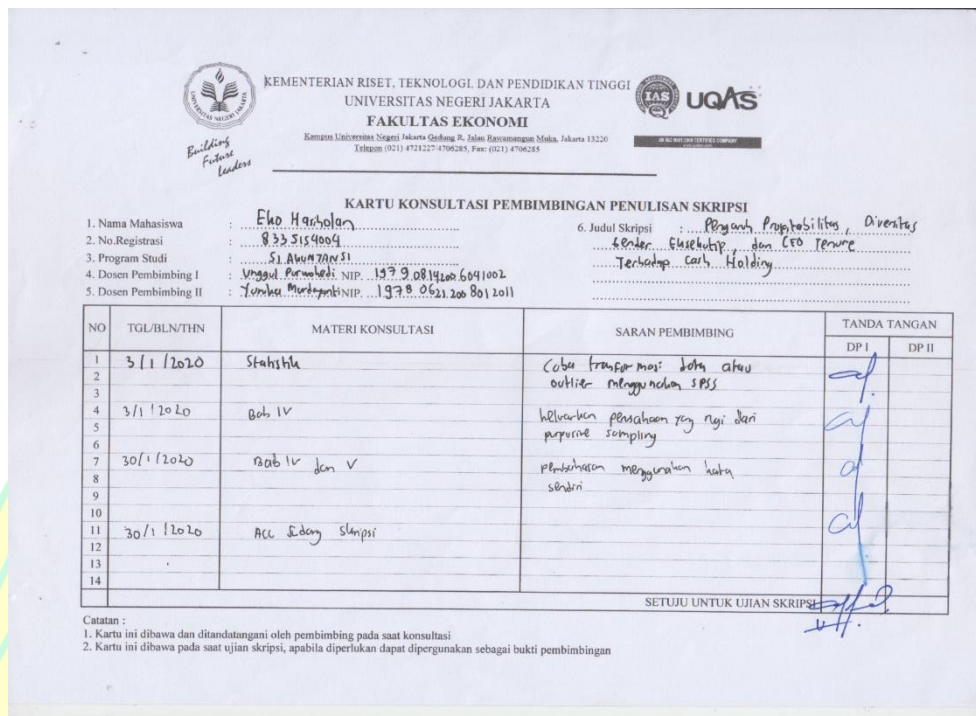 KEMENTERIAN RISET, TEKNOLOGI, DAN PENDIDIKAN TINGGI
UNIVERSITAS NEGERI JAKARTA
FAKULTAS EKONOMI
Kampus Universitas Negeri Jakarta Gedung R, Jalan Rawamangun Muka, Jakarta 13220
Telepon (021) 4721227/4706285, Fax: (021) 4706285
UNIVERSITAS NEGERI JAKARTA
Building
Future
Leaders
IAS
UQAS
KARTU KONSULTASI PEMBIMBINGAN PENULISAN SKRIPSI
1. Nama Mahasiswa : Eko Hariholan
2. No.Registrasi : 8335154004
3. Program Studi : S1 AKUNTANSI
4. Dosen Pembimbing I : Unggul Purwohedi NIP. 197908142006041002
5. Dosen Pembimbing II : NIP. 197806212008012011
6. Judul Skripsi : Pengaruh Profitabilitas, Diversitas
Gender Eksekutif, dan CEO Tenure
Terhadap Cash Holding
NO TGL/BLN/THN MATERI KONSULTASI SARAN PEMBIMBING TANDA TANGAN
DP I DP II
1 3/1/2020 Statistik Coba transformasi data atau
2 outlier menggunakan SPSS
3
4 3/1/2020 Bab IV keluarkan perusahaan yang rugi dari
5 purposive sampling
6
7 30/1/2020 Bab IV dan V pembahasan menggunakan kata
8 sendiri
9
10
11 30/1/2020 ACC Sidang Skripsi
12
13
14
SETUJU UNTUK UJIAN SKRIPSI
Catatan :
1. Kartu ini dibawa dan ditandatangani oleh pembimbing pada saat konsultasi
2. Kartu ini dibawa pada saat ujian skripsi, apabila diperlukan dapat dipergunakan sebagai bukti pembimbingan